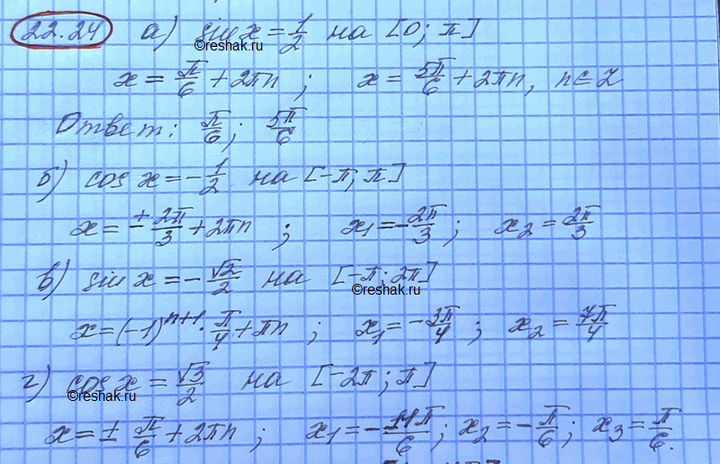 22.24 а) sin x = 1/2 на [0; π]
©reshak.ru
x = π/6 + 2πn ; x = 5π/6 + 2πn, n∈Z
Ответ: π/6; 5π/6
б) cos x = -1/2 на [-π; π]
x = ± 2π/3 + 2πn ; x₁ = -2π/3 ; x₂ = 2π/3
в) sin x = -√2/2 на [-π; 2π]
©reshak.ru
x = (-1)ⁿ⁺¹ · π/4 + πn ; x₁ = -3π/4 ; x₂ = 7π/4
г) cos x = √3/2 на [-2π; π]
©reshak.ru
x = ± π/6 + 2πn ; x₁ = -11π/6; x₂ = -π/6; x₃ = π/6.